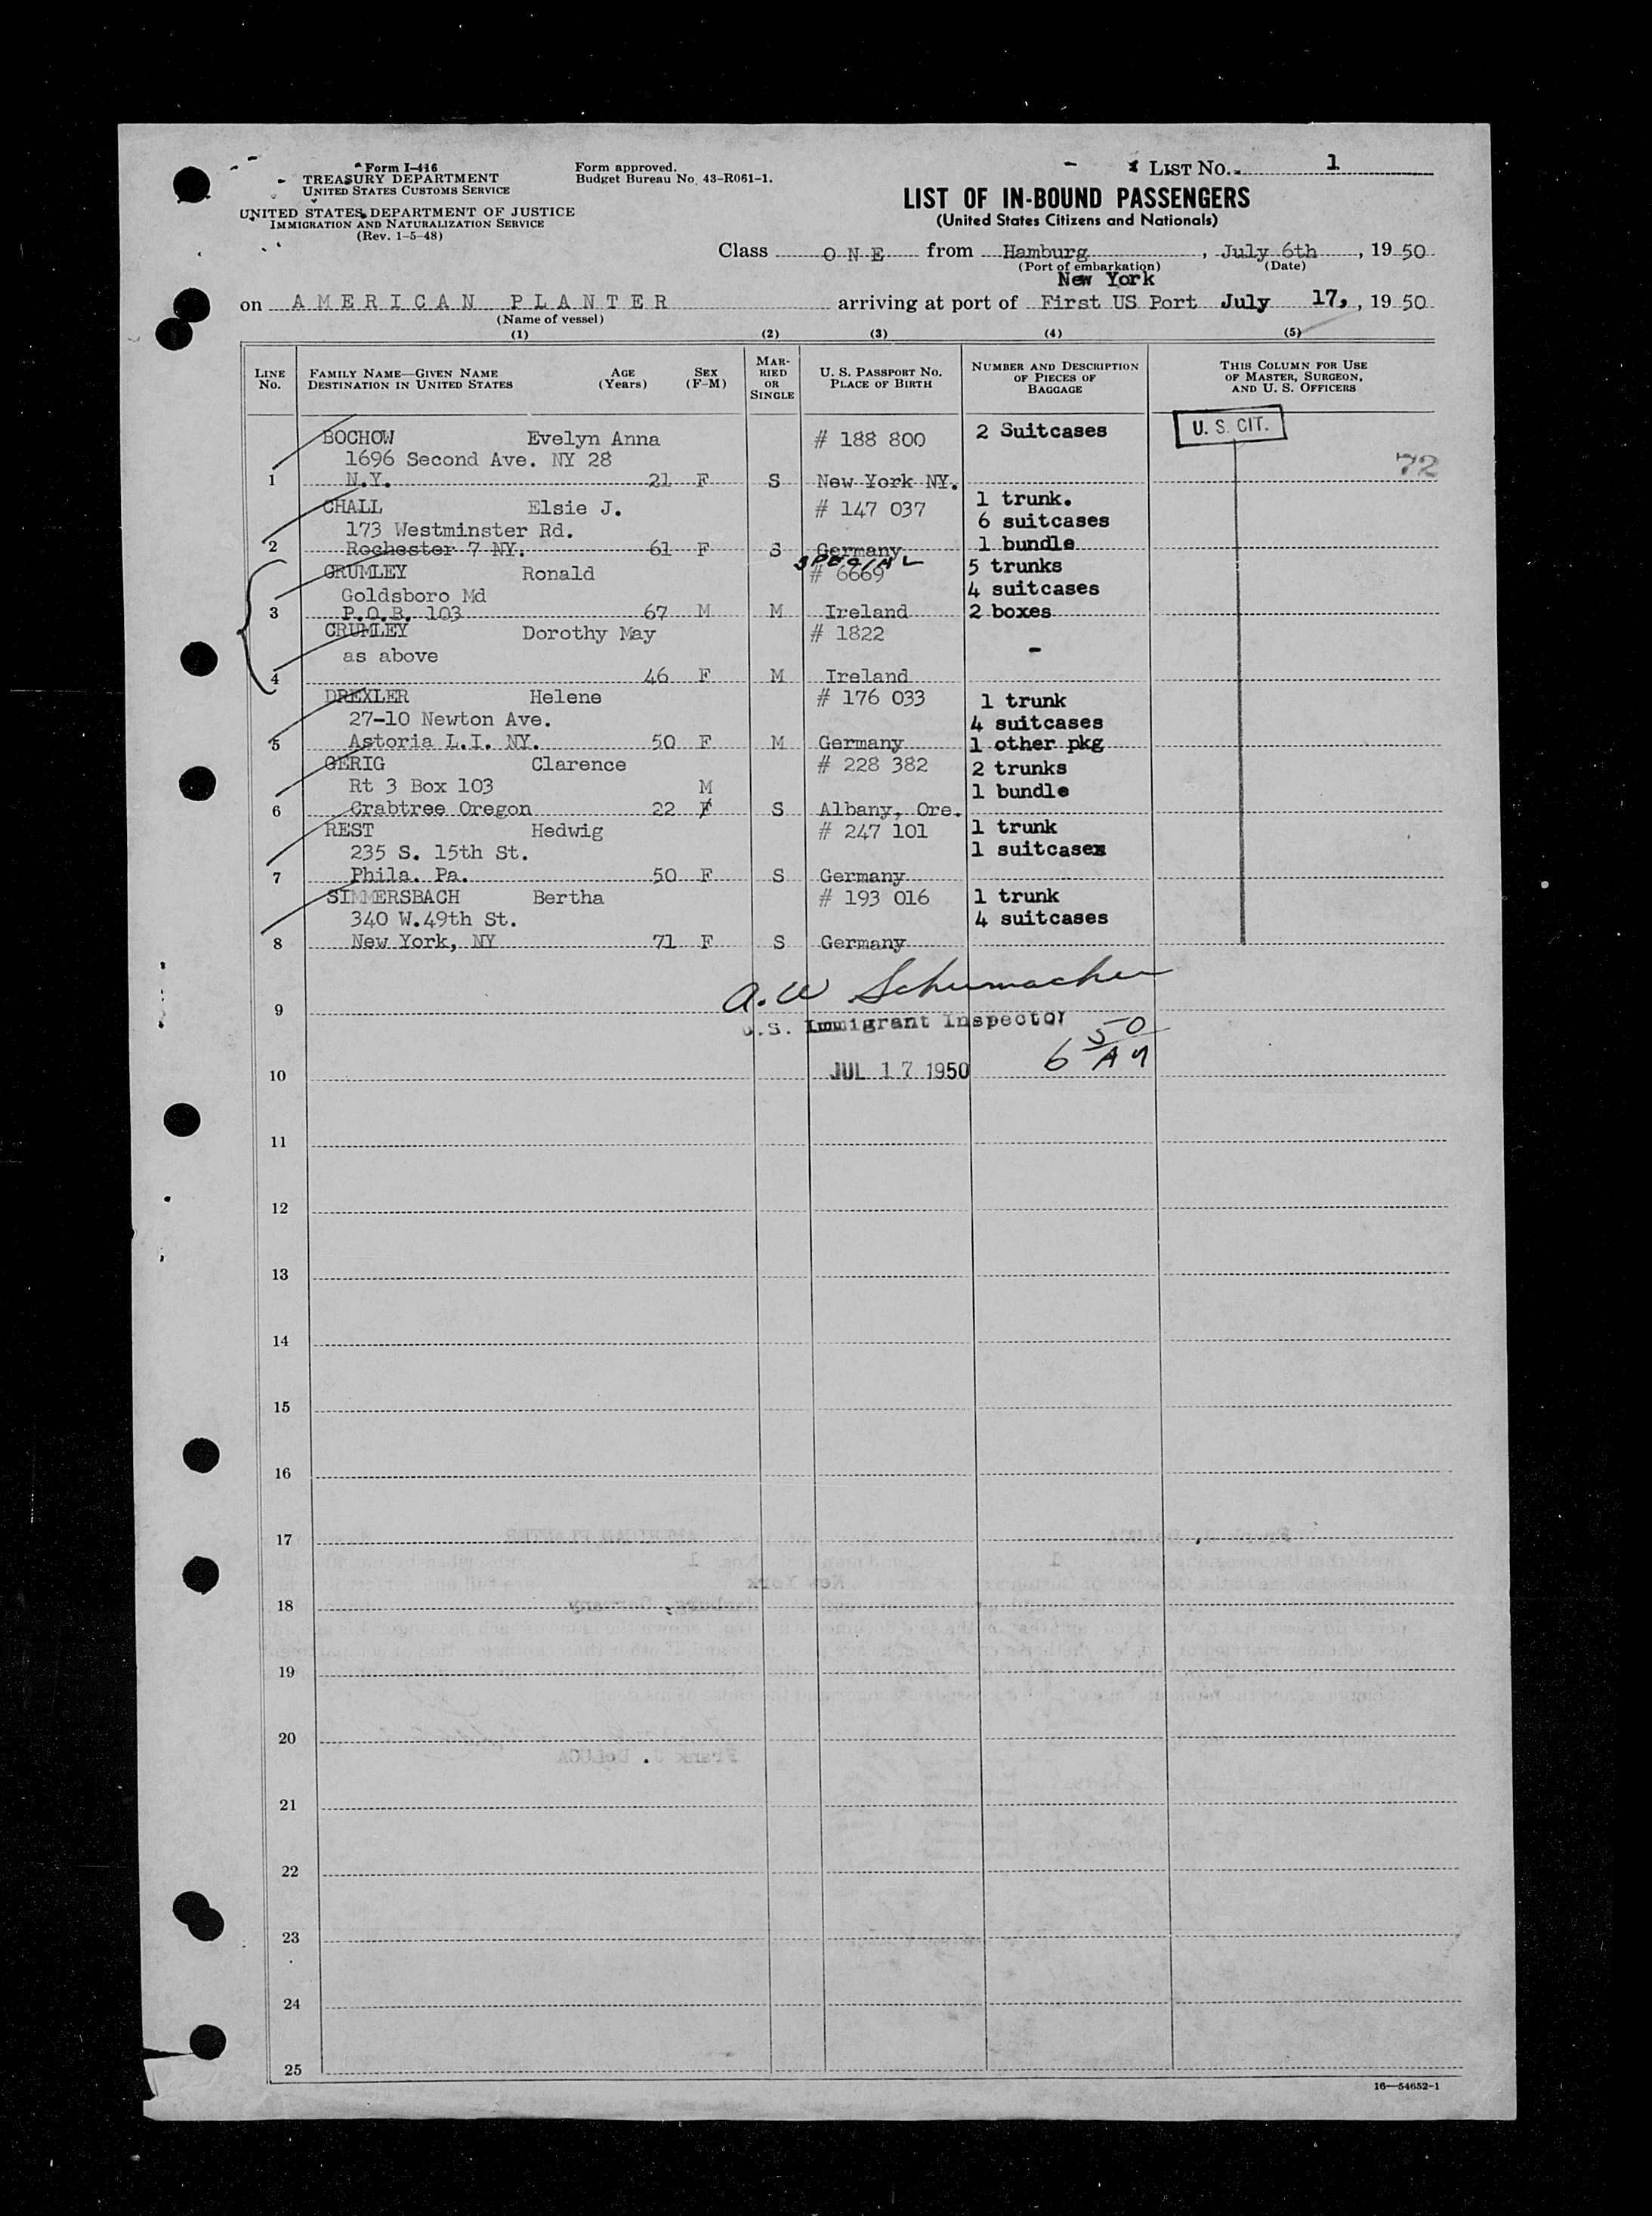 Form I-416
TREASURY DEPARTMENT
UNITED STATES CUSTOMS SERVICE
UNITED STATES DEPARTMENT OF JUSTICE
IMMIGRATION AND NATURALIZATION SERVICE
(Rev. 1-5-48)
Form approved.
Budget Bureau No. 43-R061-1.
LIST NO. 1
LIST OF IN-BOUND PASSENGERS
(United States Citizens and Nationals)
Class ONE from Hamburg, July 6th, 1950
(Port of embarkation) (Date)
New York
on AMERICAN PLANTER arriving at port of First US Port July 17, 1950
(Name of vessel)
(1) (2) (3) (4) (5)
LINE NO.
FAMILY NAME—GIVEN NAME
DESTINATION IN UNITED STATES
AGE (Years)
SEX (F-M)
MARRIED OR SINGLE
U. S. PASSPORT NO.
PLACE OF BIRTH
NUMBER AND DESCRIPTION OF PIECES OF BAGGAGE
THIS COLUMN FOR USE OF MASTER, SURGEON, AND U. S. OFFICERS
BOCHOW Evelyn Anna # 188 800 2 Suitcases U. S. CIT.
1696 Second Ave. NY 28 72
1 N.Y. 21 F S New York NY.
CHALL Elsie J. # 147 037 1 trunk.
173 Westminster Rd. 6 suitcases
2 Rochester 7 NY. 61 F S Germany 1 bundle
SPECIAL
CRUMLEY Ronald # 6669 5 trunks
Goldsboro Md 4 suitcases
3 P.O.B. 103 67 M M Ireland 2 boxes
CRUMLEY Dorothy May # 1822
as above -
4 46 F M Ireland
DREXLER Helene # 176 033 1 trunk
27-10 Newton Ave. 4 suitcases
5 Astoria L.I. NY. 50 F M Germany 1 other pkg
GERIG Clarence # 228 382 2 trunks
Rt 3 Box 103 M 1 bundle
6 Crabtree Oregon 22 F S Albany, Ore.
REST Hedwig # 247 101 1 trunk
235 S. 15th St. 1 suitcases
7 Phila. Pa. 50 F S Germany
SIMMERSBACH Bertha # 193 016 1 trunk
340 W.49th St. 4 suitcases
8 New York, NY 71 F S Germany
A. W Schumacher
9
U.S. Immigrant Inspector
6 50 AM
10 JUL 17 1950
11
12
13
14
15
16
17
18
19
20
21
22
23
24
25
16—54652-1